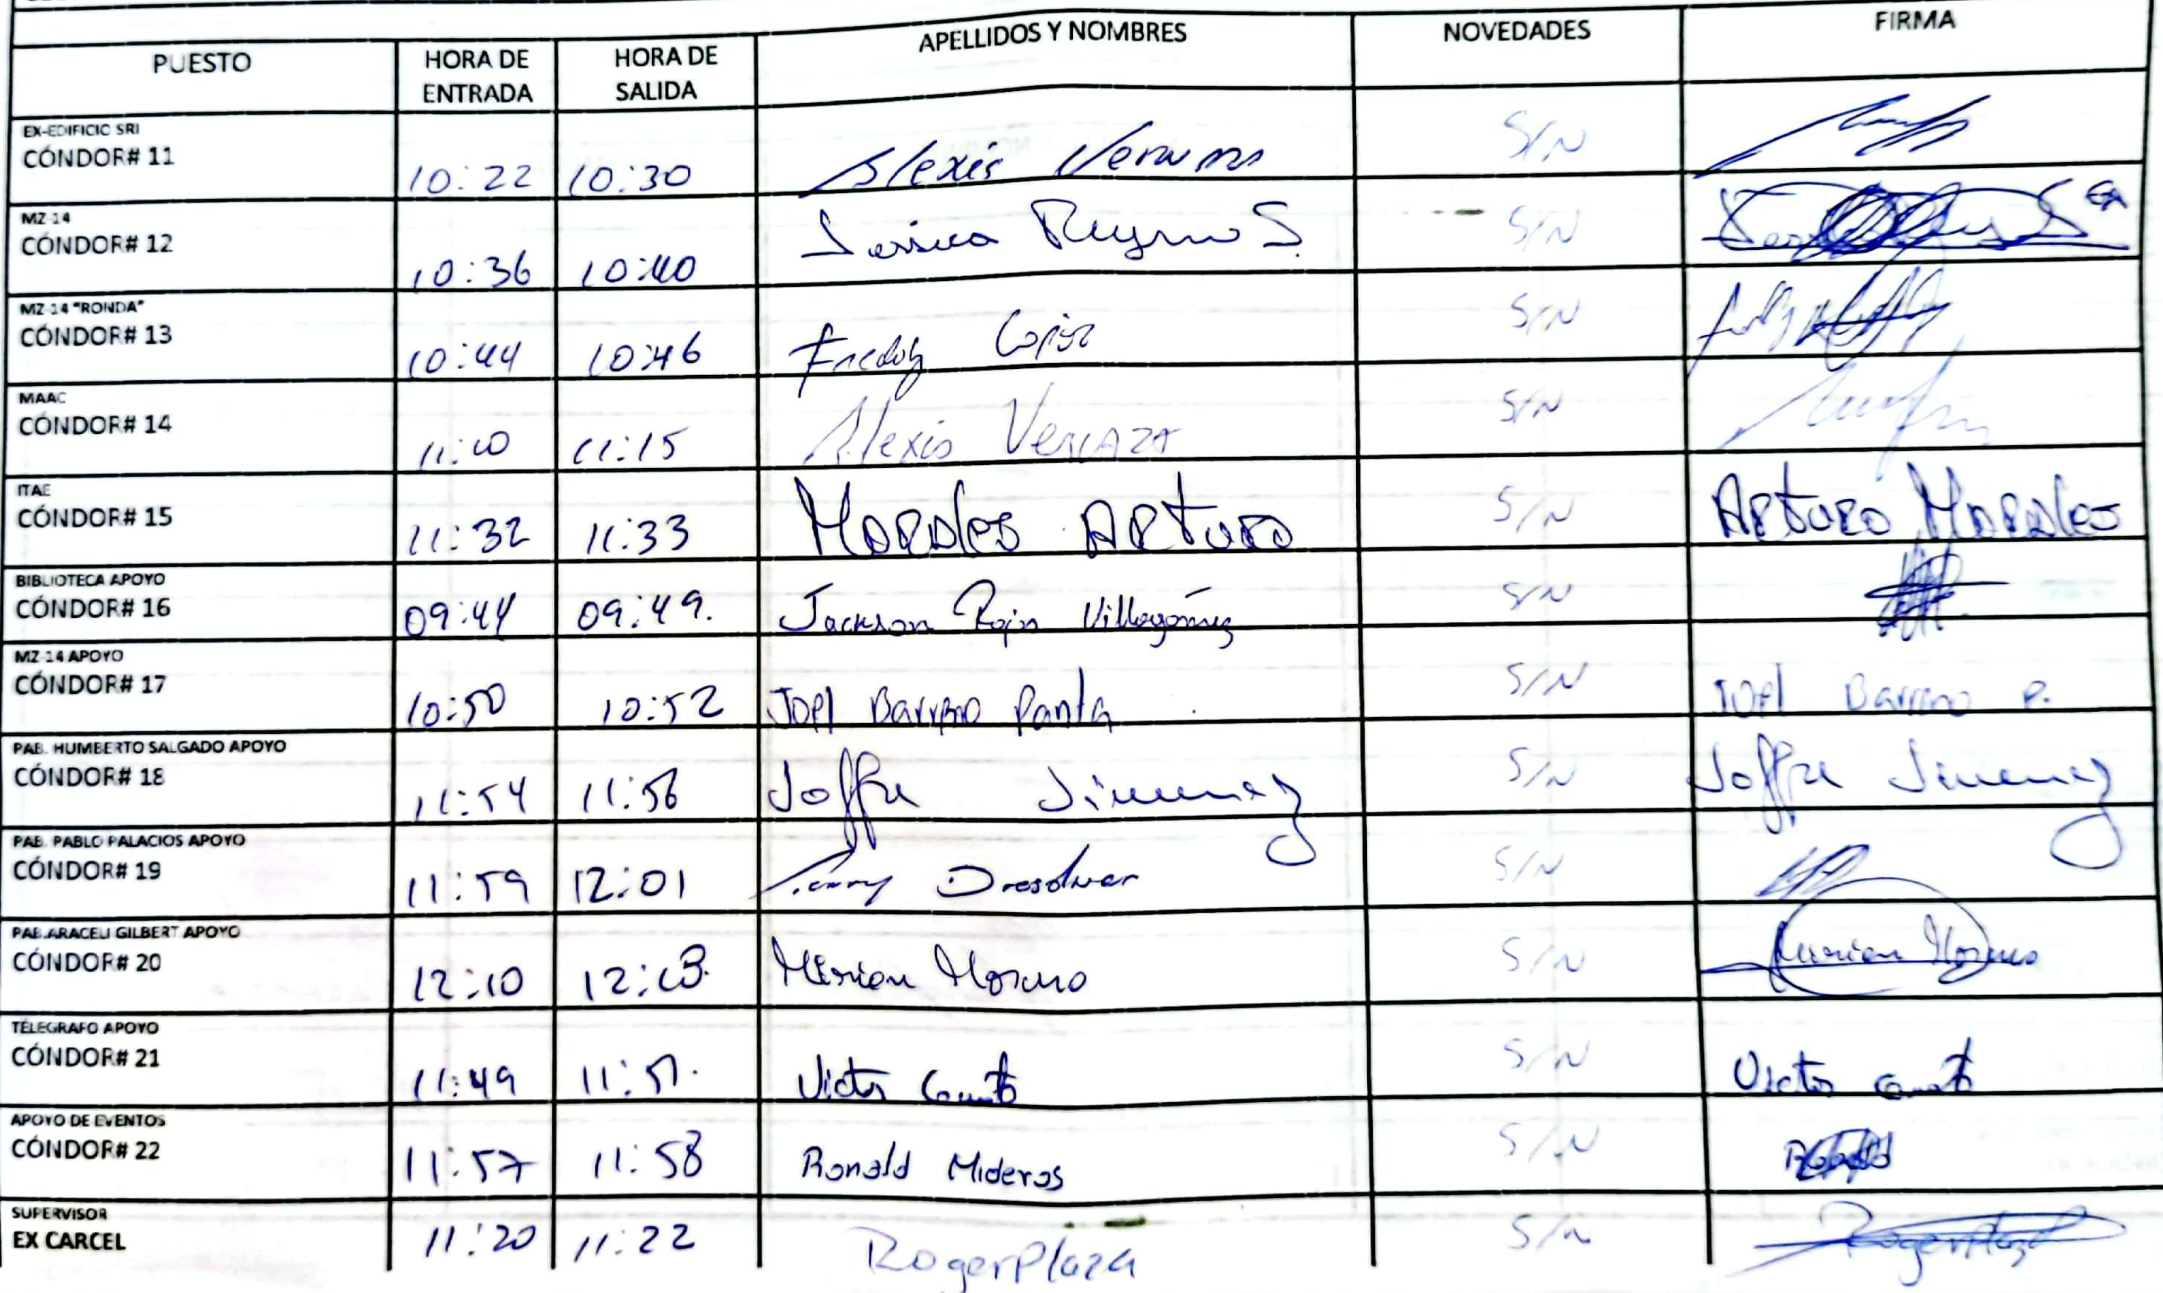 PUESTO HORA DE ENTRADA HORA DE SALIDA APELLIDOS Y NOMBRES NOVEDADES FIRMA
EX-EDIFICIO SRI
CÓNDOR# 11 10:22 10:30 Alexis S/N
MZ-14
CÓNDOR# 12 10:36 10:40 S/N
MZ-14 "RONDA"
CÓNDOR# 13 10:44 10:46 Freddy S/N
MAAC
CÓNDOR# 14 11:10 11:15 Alexis Vernaza S/N
ITAE
CÓNDOR# 15 11:32 11:33 Morales Arturo S/N Arturo Morales
BIBLIOTECA APOYO
CÓNDOR# 16 09:44 09:49. Jackson Villagómez S/N
MZ-14 APOYO
CÓNDOR# 17 10:50 10:52 Joel Barreno Panta S/N Joel Barreno P.
PAB. HUMBERTO SALGADO APOYO
CÓNDOR# 18 11:54 11:56 Joffre Jimenez S/N Joffre Jimenez
PAB. PABLO PALACIOS APOYO
CÓNDOR# 19 11:59 12:01 S/N
PAB.ARACELI GILBERT APOYO
CÓNDOR# 20 12:10 Mirian Moreno S/N Mirian Moreno
TÉLEGRAFO APOYO
CÓNDOR# 21 11:49 11:51. Victor S/N Victor
APOYO DE EVENTOS
CÓNDOR# 22 11:57 11:58 Ronald Mideros S/N Ronald
SUPERVISOR
EX CARCEL 11:20 11:22 Roger Plaza S/N Roger Plaza